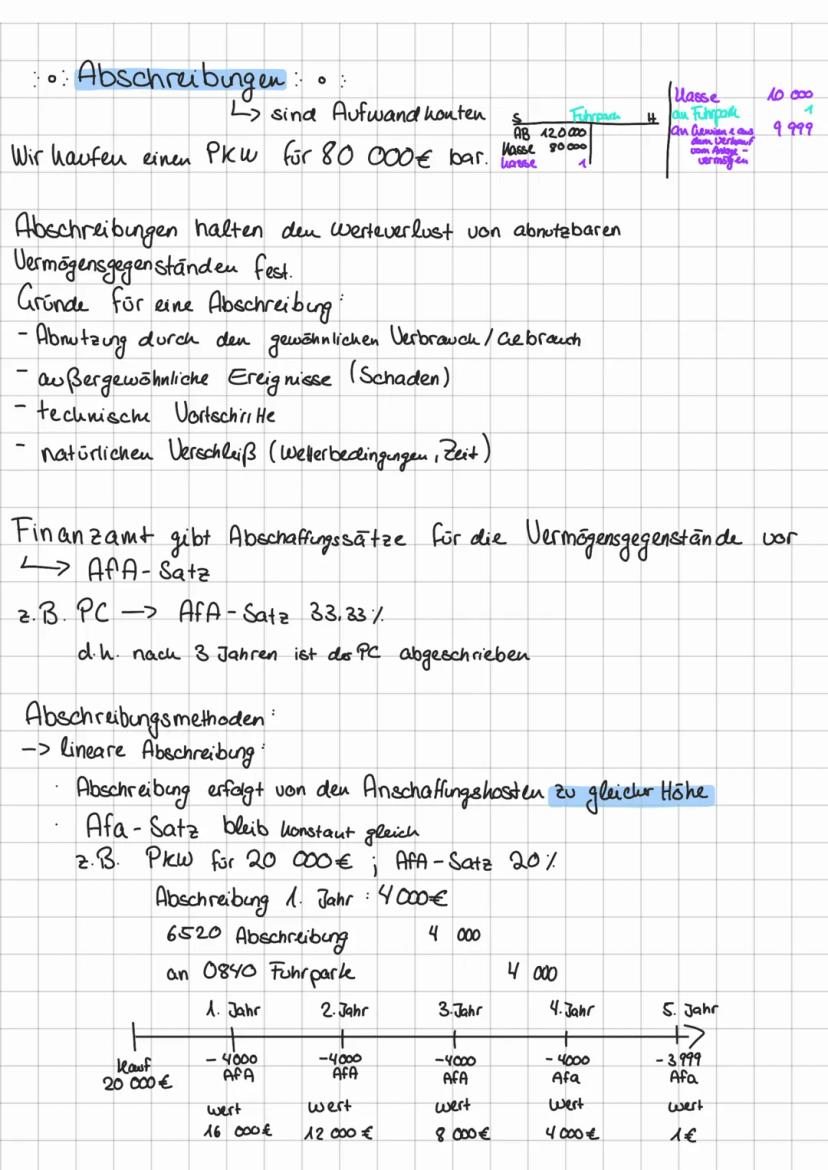 Abschreibungen
↳ sind Aufwandkonten
Wir kaufen einen PKW für 80 000€ bar.
S Fuhrpark H
AB 120 000
Kasse 80 000
Kasse 1
Kasse 10 000
an Fuhrpark 1
an Gewinne aus 9 999
dem Verkauf
vom Anlage-
vermögen
Abschreibungen halten den Werteverlust von abnutzbaren
Vermögensgegenständen fest.
Gründe für eine Abschreibung:
- Abnutzung durch den gewöhnlichen Verbrauch/Gebrauch
- außergewöhnliche Ereignisse (Schaden)
- technische Vortschritte
- natürlichen Verschleiß (Wetterbedingungen, Zeit)
Finanzamt gibt Abschaffungssätze für die Vermögensgegenstände vor
↳ AfA-Satz
z.B. PC -> AfA-Satz 33,33%
d.h. nach 3 Jahren ist der PC abgeschrieben
Abschreibungsmethoden:
-> lineare Abschreibung:
· Abschreibung erfolgt von den Anschaffungskosten zu gleicher Höhe
· Afa-Satz bleib konstant gleich
z.B. PKW für 20 000€ ; AfA-Satz 20%
Abschreibung 1. Jahr : 4 000€
6520 Abschreibung 4 000
an 0840 Fuhrpark 4 000
1. Jahr 2. Jahr 3. Jahr 4. Jahr 5. Jahr
Kauf -4000 -4000 -4000 -4000 -3999
20 000€ AfA AfA AfA Afa Afa
wert wert wert wert wert
16 000€ 12 000€ 8 000€ 4 000€ 1€